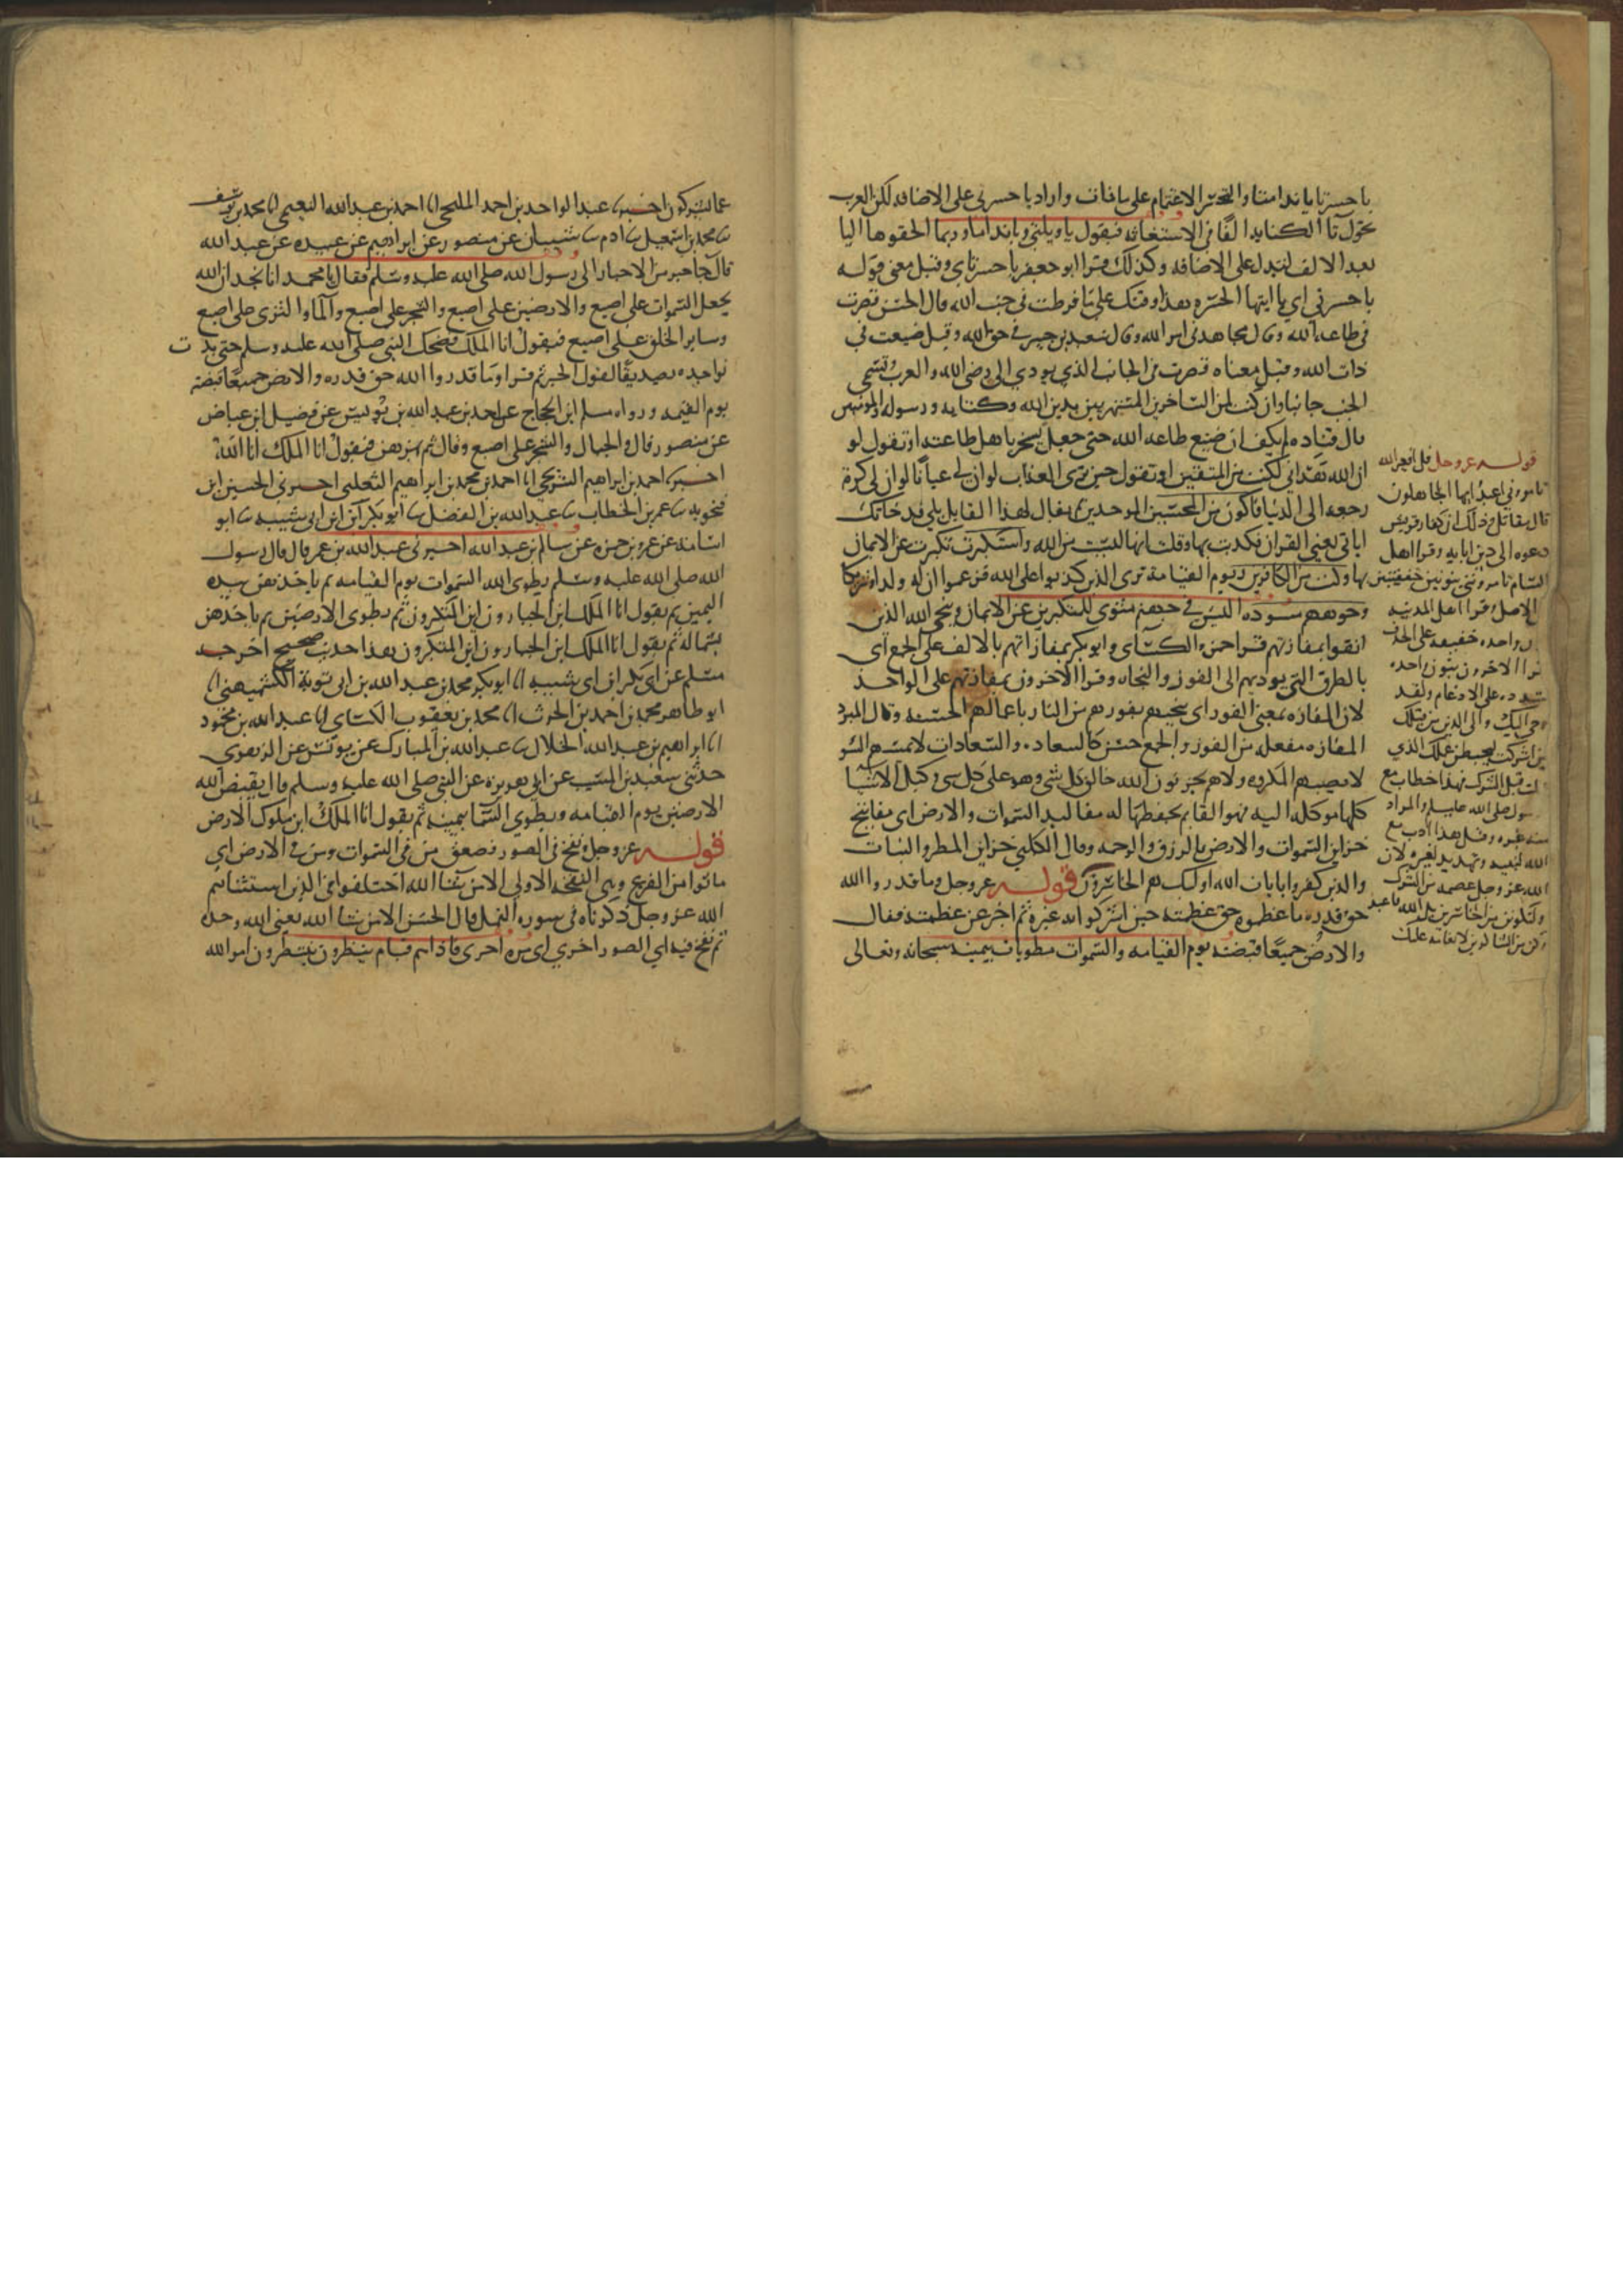 يا حسرتا يا ندامتا والتحسر الاغتمام على ما فات واراد يا حسرتي على الاضافه لكن العرب
تحول تا الكنايه الفا في الاستغاثه فيقول يا ويلتي ويا نداما وربما الحقوها اليا
بعد الالف لتدل على الاضافه وكذلك قرا ابو جعفر يا حسرتاي وقيل معنى قوله
يا حسرتي اي يا ايتها الحسره هذا وقتك على ما فرطت في جنب الله قال الحسن قصرت
في طاعه الله وقال مجاهد في امر الله وقال سعيد بن جبير في حق الله وقيل ضيعت في
ذات الله وقيل معناه قصرت في الجانب الذي يودي الى رضي الله والعرب تسمي
الجنب جانبا وان كنت لمن الساخرين المستهزيين بدين الله وكتابه ورسوله والمومنين
قال قتاده لم يكف ان ضيع طاعه الله حتى جعل يسخر باهل طاعته او تقول لو
ان الله هداني لكنت من المتقين او تقول حين ترى العذاب لو ان لي عيانا لو ان لي كرة
رجعه الى الدنيا فاكون من المحسنين الموحدين يقال لهذا القايل بلى قد جاتك
اياتي يعني القران فكذبت بها وقلت انها ليست من الله واستكبرت تكبرت عن الايمان
بها وكنت من الكافرين ويوم القيامة ترى الذين كذبوا على الله فزعموا ان له ولدا وشريكا
وجوههم مسوده اليس في جهنم مثوى للمتكبرين عن الايمان وينجي الله الذين
اتقوا بمفازتهم قرا حمزه والكساي وابو بكر بمفازاتهم بالالف على الجمع اي
بالطرق التي يوديهم الى الفوز والنجاه وقرا الاخرون بمفازتهم على الواحد
لان المفازه بمعنى الفوز اي ينجيهم بفوزهم من النار باعمالهم الحسنه وقال المبرد
المفازه مفعله من الفوز والجمع حسن كالسعاده والسعادات لا يمسهم السو
لا يصيبهم المكروه ولا هم يحزنون الله خالق كل شي وهو على كل شي وكيل الاشيا
كلها موكله اليه فهو القايم بحفظها له مقاليد السموات والارض اي مفاتيح
خزاين السموات والارض بالرزق والرحمه وقال الكلبي خزاين المطر والنبات
والذين كفروا بايات الله اوليك هم الخاسرون قوله عز وجل وما قدروا الله
حق قدره ما عظموه حق عظمته حين اشركوا به غيره ثم اخبر عن عظمته فقال
والارض جميعا قبضته يوم القيامه والسموات مطويات بيمينه سبحانه وتعالى
قوله عز وجل قل افغير الله
تامروني اعبد ايها الجاهلون
قال مقاتل وذلك ان كفار قريش
دعوه الى دين ابايه وقرا اهل
الشام تامرونني بنونين خفيفتين
الاصل وقرا اهل المدينه
واحده خفيفه على الحذف
قرا الاخرون بنون واحده
مشدده على الادغام ولقد
اوحي اليك والى الذين من قبلك
لين اشركت ليحبطن عملك الذي
قبل الشرك فهذا خطاب مع
رسول صلى الله عليه والمراد
منه غيره وقيل هذا ادب مع
الله لنبيه وتهديد لغيره لان
الله عز وجل عصمه من الشرك
ولتكونن من الخاسرين بل الله فاعبد
وكن من الشاكرين لانعامه عليك
عما يشركون اخبرنا عبد الواحد بن احمد المليحي انا احمد بن عبد الله النعيمي انا محمد بن يوسف
ثنا محمد بن اسمعيل ثنا ادم ثنا شيبان عن منصور عن ابراهيم عن عبيده عن عبد الله
قال جا حبر من الاحبار الى رسول الله صلى الله عليه وسلم فقال يا محمد انا نجد ان الله
يجعل السموات على اصبع والارضين على اصبع والشجر على اصبع والما والثرى على اصبع
وساير الخلق على اصبع فيقول انا الملك فضحك النبي صلى الله عليه وسلم حتى بدت
نواجده تصديقا لقول الحبر ثم قرا وما قدروا الله حق قدره والارض جميعا قبضته
يوم القيمه ورواه مسلم ابن الحجاج عن احمد بن عبد الله بن يونس عن فضيل ابن عياض
عن منصور قال والجبال والشجر على اصبع وقال ثم يهزهن فيقول انا الملك انا الله
اخبرنا احمد بن ابراهيم الشريحي انا احمد بن محمد بن ابراهيم الثعلبي اخبرني الحسين ابن
فنجويه ثنا عمر بن الخطاب ثنا عبد الله بن الفضل ثنا ابو بكر ابن ابي شيبه ثنا ابو
اسامه عن عمرو بن حمزه عن سالم بن عبد الله اخبرني عبد الله بن عمر قال قال رسول
الله صلى الله عليه وسلم يطوي الله السموات يوم القيامه ثم ياخذهن بيده
اليمين ثم يقول انا الملك ابن الجبارون ابن المتكبرون ثم يطوي الارضين ثم ياخذهن
بشماله ثم يقول انا الملك ابن الجبارون ابن المتكبرون هذا حديث صحيح اخرجه
مسلم عن ابي بكر ابن ابي شيبه انا ابو بكر محمد بن عبد الله بن ابي توبة الكشميهني انا
ابو طاهر محمد بن احمد بن الحرث انا محمد بن يعقوب الكساي انا عبد الله بن محمود
انا ابراهيم بن عبد الله الخلال ثنا عبد الله بن المبارك عن يونس عن الزهري
حدثني سعيد بن المسيب عن ابي هريره عن النبي صلى الله عليه وسلم قال يقبض الله
الارضين يوم القيامه ويطوي السما بيمينه ثم يقول انا الملك ابن ملوك الارض
قوله عز وجل ونفخ في الصور فصعق من في السموات ومن في الارض اي
ماتوا من الفزع وهي النفخه الاولى الا من شا الله اختلفوا في الذين استثناهم
الله عز وجل ذكرناه في سوره النمل قال الحسن الا من شا الله يعني الله وحده
ثم نفخ فيه اي الصور اخرى اي مره اخرى فاذا هم قيام ينظرون ينتظرون امر الله